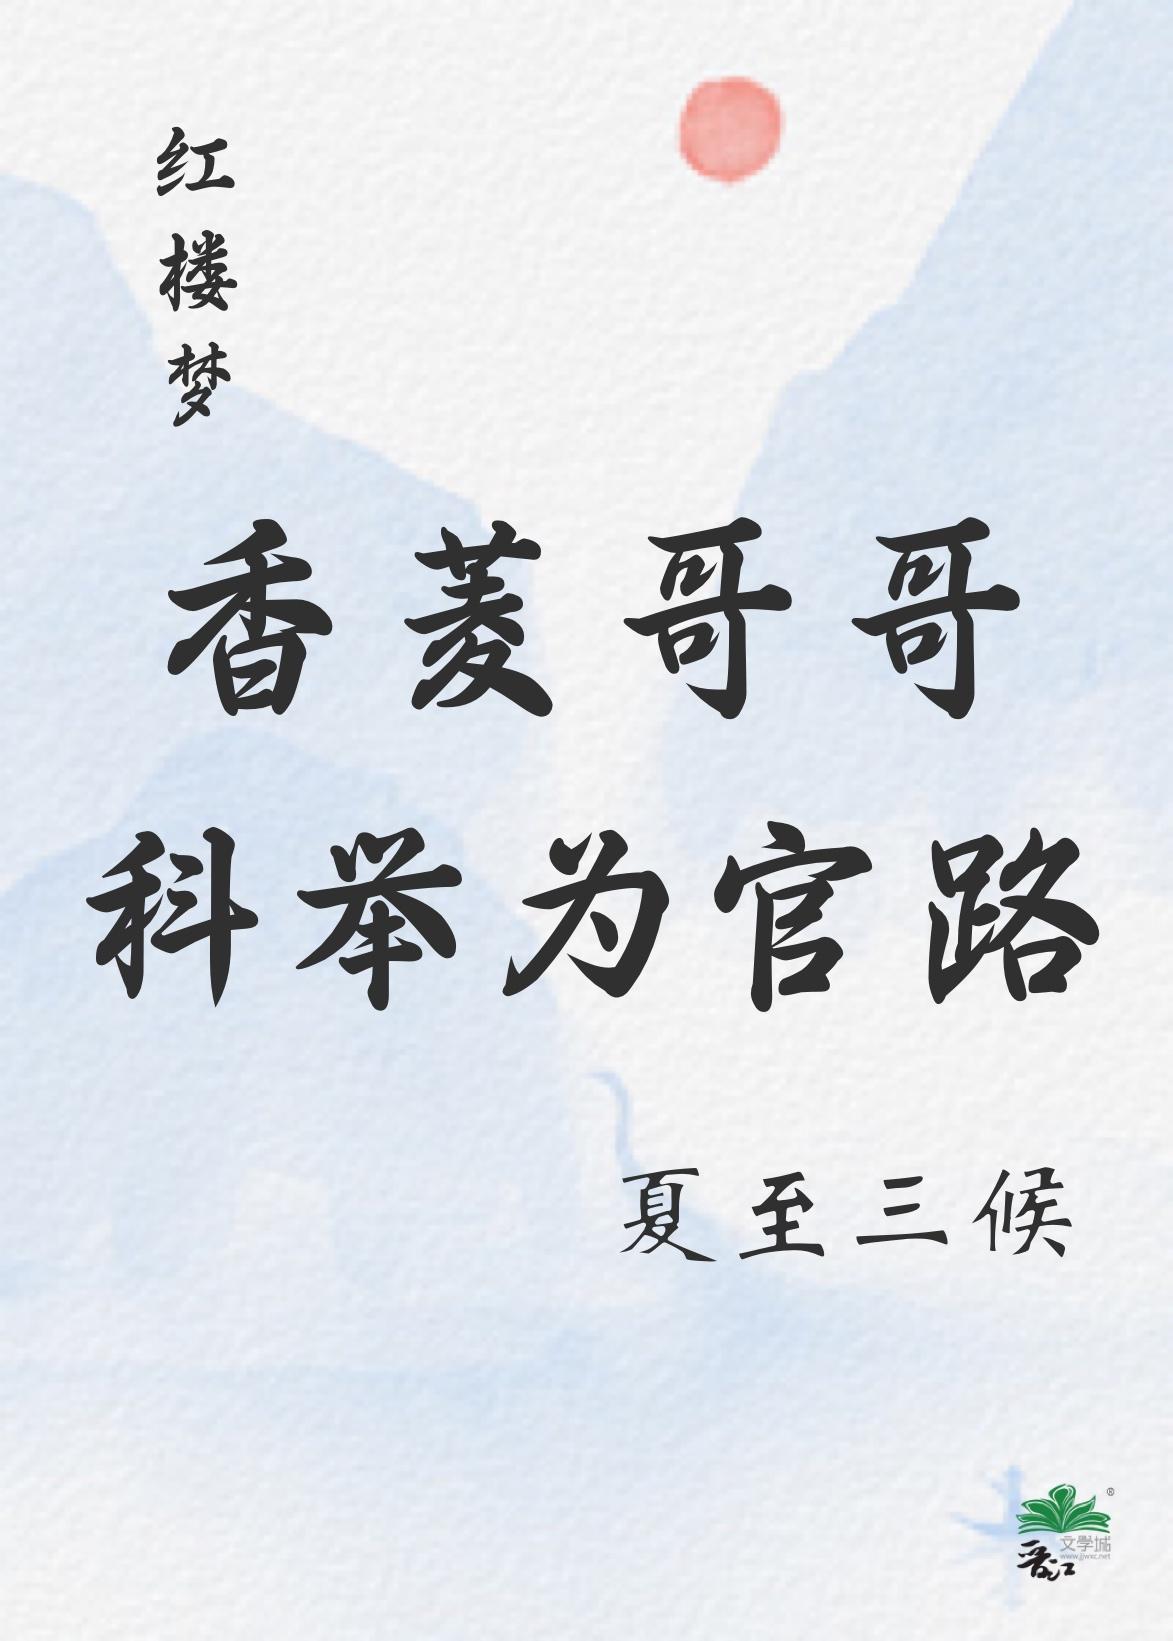 红楼梦
香菱哥哥
科举为官路
夏至三候
®
文學城
www.jjwxc.net
晋江